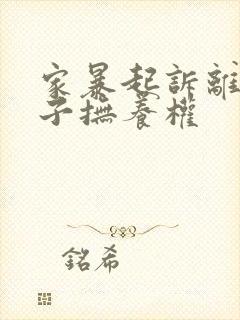 家暴起訴離
子撫養權
銘希